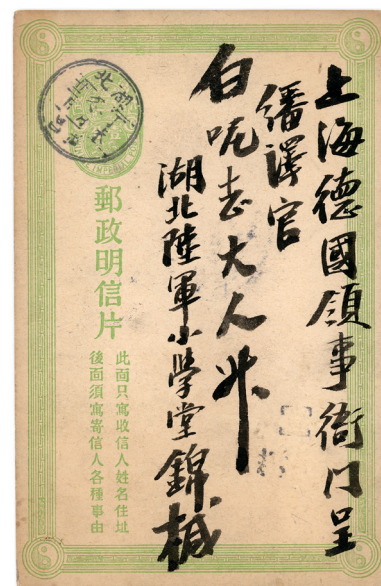 上海德國領事衙門呈
繙譯官
白呢去大人升
湖北陸軍小學堂錦
郵政明信片
此面只寫收信人姓名住址
後面須寫寄信人各種事由